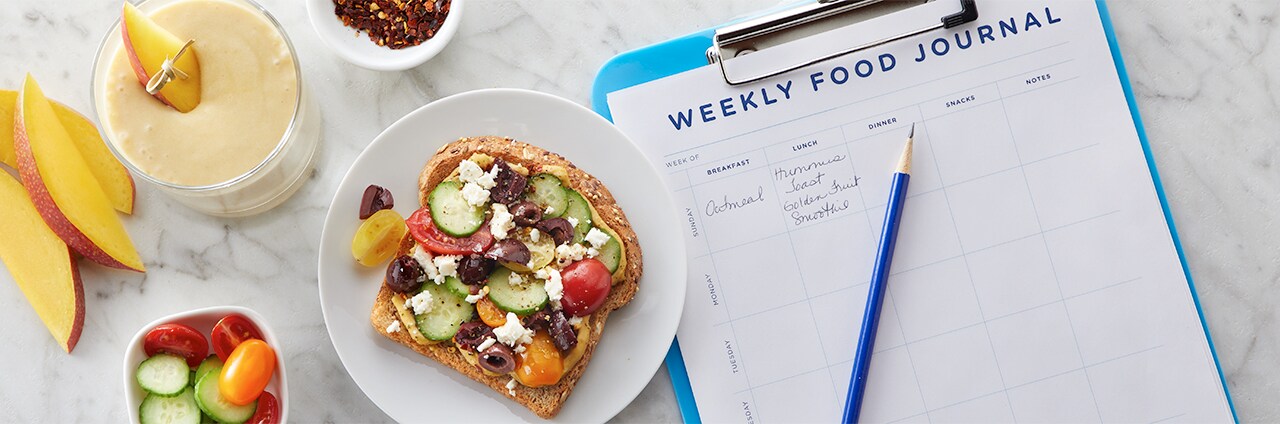 WEEKLY FOOD JOURNAL
WEEK OF
BREAKFAST
LUNCH
DINNER
SNACKS
NOTES
SUNDAY
Oatmeal
Hummus
Toast
Golden Fruit
Smoothie
MONDAY
TUESDAY